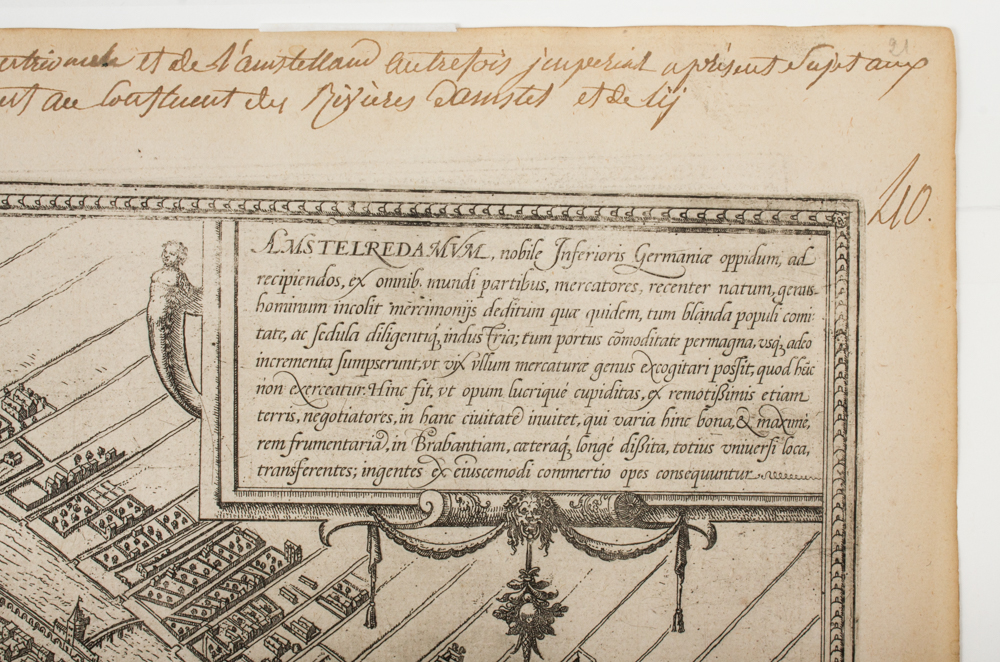 et de L'amstelland autrefois jmperial apresent Sujet aux
au Confluent des Rivières damstel et de lij
21
40.
AMSTELREDAMVM, nobile Inferioris Germaniæ oppidum, ad
recipiendos, ex omnib. mundi partibus, mercatores, recenter natum, genus
hominum incolit mercimonijs deditum quæ quidem, tum blãnda populi comi:
tate, ac sedula diligentiq, industria; tum portus cõmoditate permagna, vsq, adeo
incrementa sumpserunt, vt vix vllum mercaturæ genus excogitari possit, quod hîc
non exerceatur. Hinc fit, vt opum lucriquè cupiditas, ex remotißimis etiam
terris, negotiatores, in hanc ciuitatẽ inuitet, qui varia hinc bona, & maximè,
rem frumentariã, in Brabantiam, cæteraq, longè dißita, totius vniuersi loca,
transferentes; ingentes ex eiuscemodi commertio opes consequuntur